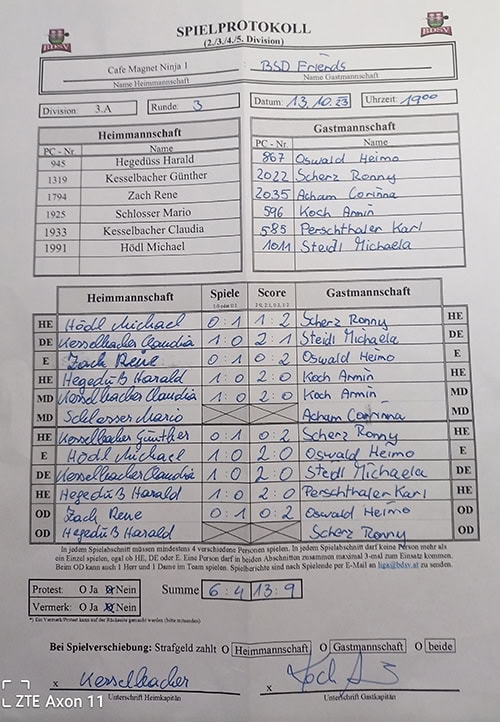 SPIELPROTOKOLL
(2./3./4./5. Division)
BDSV BDSV
Cafe Magnet Ninja 1 : BSD Friends
Name Heimmannschaft Name Gastmannschaft
Division: 3.A Runde: 3 Datum: 13.10.23 Uhrzeit: 19 00
Heimmannschaft Gastmannschaft
PC - Nr. Name PC - Nr. Name
945 Hegedüss Harald 867 Oswald Heimo
1319 Kesselbacher Günther 2022 Scherz Ronny
1794 Zach Rene 2035 Acham Corinna
1925 Schlosser Mario 596 Koch Armin
1933 Kesselbacher Claudia 585 Perschthaler Karl
1991 Hödl Michael 1011 Steidl Michaela
Heimmannschaft Spiele Score Gastmannschaft
HE Hödl Michael 0:1 1:2 Scherz Ronny HE
DE Kesselbacher Claudia 1:0 2:1 Steidl Michaela DE
E Zach Rene 0:1 0:2 Oswald Heimo E
HE Hegedüß Harald 1:0 2:0 Koch Armin HE
MD Kesselbacher Claudia 1:0 2:0 Koch Armin MD
MD Schlosser Mario Acham Corinna MD
HE Kesselbacher Günther 0:1 0:2 Scherz Ronny HE
E Hödl Michael 1:0 2:0 Oswald Heimo E
DE Kesselbacher Claudia 1:0 2:0 Steidl Michaela DE
HE Hegedüß Harald 1:0 2:0 Perschthaler Karl HE
OD Zach Rene 0:1 0:2 Oswald Heimo OD
OD Hegedüß Harald Scherz Ronny OD
In jedem Spielabschnitt müssen mindestens 4 verschiedene Personen spielen. In jedem Spielabschnitt darf keine Person mehr als
ein Einzel spielen, egal ob HE, DE oder E. Eine Person darf in beiden Abschnitten zusammen maximal 3-mal zum Einsatz kommen.
Beim OD kann auch 1 Herr und 1 Dame im Team spielen. Spielberichte sind nach Spielende per E-Mail an liga@bdsv.at zu senden.
Protest: O Ja O Nein Summe 6:4 13:9
Vermerk: O Ja O Nein
*) Ein Vermerk/Protest kann auf der Rückseite gemacht werden (bitte ankreuzen)
Bei Spielverschiebung: Strafgeld zahlt O Heimmannschaft O Gastmannschaft O beide
x Kesselbacher x
Unterschrift Heimkapitän Unterschrift Gastkapitän
ZTE Axon 11